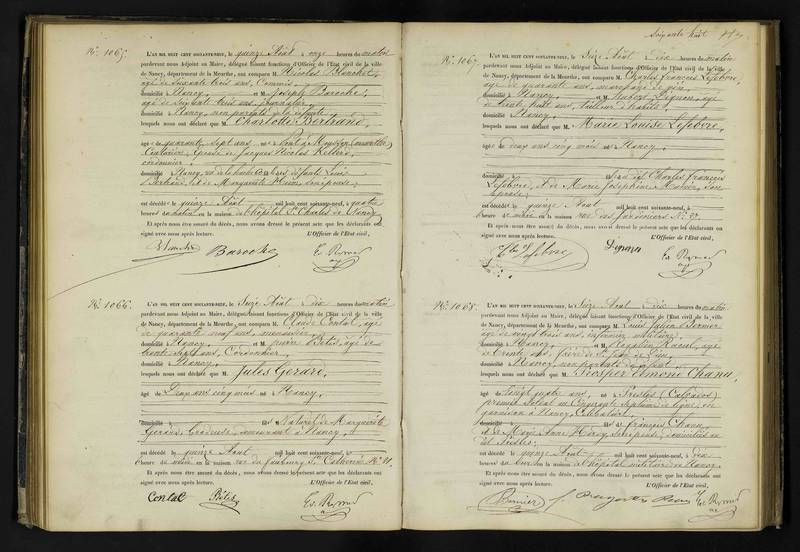 Soixante huit
N.° 1065.
L'AN MIL HUIT CENT SOIXANTE-NEUF, le quinze Août à onze heures du matin
pardevant nous Adjoint au Maire, délégué faisant fonctions d'Officier de l'Etat civil de la ville
de Nancy, département de la Meurthe, ont comparu M. Nicolas Blanchet,
âgé de soixante trois ans, Commis,
domicilié à Nancy, et M. Joseph Baroche,
âgé de soixante trois ans, journalier,
domicilié à Nancy, non parents de la défunte
lesquels nous ont déclaré que M. Charlotte Bertrand,
âgé de quarante sept ans, né à Pont à Mousson (Meurthe)
Couturière, épouse de Jacques Nicolas
cordonnier,
domicilié à Nancy, fille de défunts Louis
Bertrand, et de Marguerite son épouse,
est décédé le quinze Août mil huit cent soixante-neuf, à quatre
heures du matin en la maison de l'hôpital St. Charles de Nancy
Et après nous être assuré du décès, nous avons dressé le présent acte que les déclarants ont
signé avec nous après lecture. L'Officier de l'Etat civil,
Blanchet Baroche
N.° 1066.
L'AN MIL HUIT CENT SOIXANTE-NEUF, le Seize Août à dix heures du matin
pardevant nous Adjoint au Maire, délégué faisant fonctions d'Officier de l'Etat civil de la ville
de Nancy, département de la Meurthe, ont comparu M. Claude Contal, âgé
de quarante neuf ans, menuisier,
domicilié à Nancy, et M. pierre âgé de
trente sept ans, Cordonnier,
domicilié à Nancy,
lesquels nous ont déclaré que M. Jules Gérard,
âgé de Deux ans cinq mois né à Nancy,
domicilié à fils Naturel de Marguerite
Gérard, Brodeuse, demeurant à Nancy,
est décédé le quinze Août mil huit cent soixante-neuf, à
heure du matin en la maison rue du faubourg Ste. Catherine N.° 11.
Et après nous être assuré du décès, nous avons dressé le présent acte que les déclarants ont
signé avec nous après lecture. L'Officier de l'Etat civil,
Contal
N.° 1067.
L'AN MIL HUIT CENT SOIXANTE-NEUF, le Seize Août à dix heures du matin
pardevant nous Adjoint au Maire, délégué faisant fonctions d'Officier de l'Etat civil de la ville
de Nancy, département de la Meurthe, ont comparu M. Charles françois Lefebvre,
âgé de quarante ans,
domicilié à Nancy, et M. Hubert âgé
de trente huit ans, tailleur d'habits,
domicilié à Nancy,
lesquels nous ont déclaré que M. Marie Louise Lefebvre,
âgé de deux ans cinq mois né à Nancy,
domicilié à fille de Charles françois
Lefebvre, et de Marie Joséphine son
épouse,
est décédé le quinze Août mil huit cent soixante-neuf, à
heure en la maison rue des Jardiniers N.°
Et après nous être assuré du décès, nous avons dressé le présent acte que les déclarants ont
signé avec nous après lecture. L'Officier de l'Etat civil,
Lefebvre
N.° 1068.
L'AN MIL HUIT CENT SOIXANTE-NEUF, le Seize Août à dix heures du matin
pardevant nous Adjoint au Maire, délégué faisant fonctions d'Officier de l'Etat civil de la ville
de Nancy, département de la Meurthe, ont comparu M. Julien
âgé de vingt trois ans, infirmier militaire,
domicilié à Nancy, et M. âgé
de trente ans, frère de St. Jean de Dieu,
domicilié à Nancy, non parents du défunt
lesquels nous ont déclaré que M. Prosper Edmond Chanu,
âgé de Vingt quatre ans, né à Presles (Calvados)
premier Soldat au Cinquante septième de ligne, en
garnison à Nancy, Célibataire,
domicilié à fils de françois Chanu,
et de Marie Anne son épouse, domiciliés au
dit Presles,
est décédé le quinze Août mil huit cent soixante-neuf, à dix
heures du soir en la maison de l'hôpital militaire de Nancy.
Et après nous être assuré du décès, nous avons dressé le présent acte que les déclarants ont
signé avec nous après lecture. L'Officier de l'Etat civil,